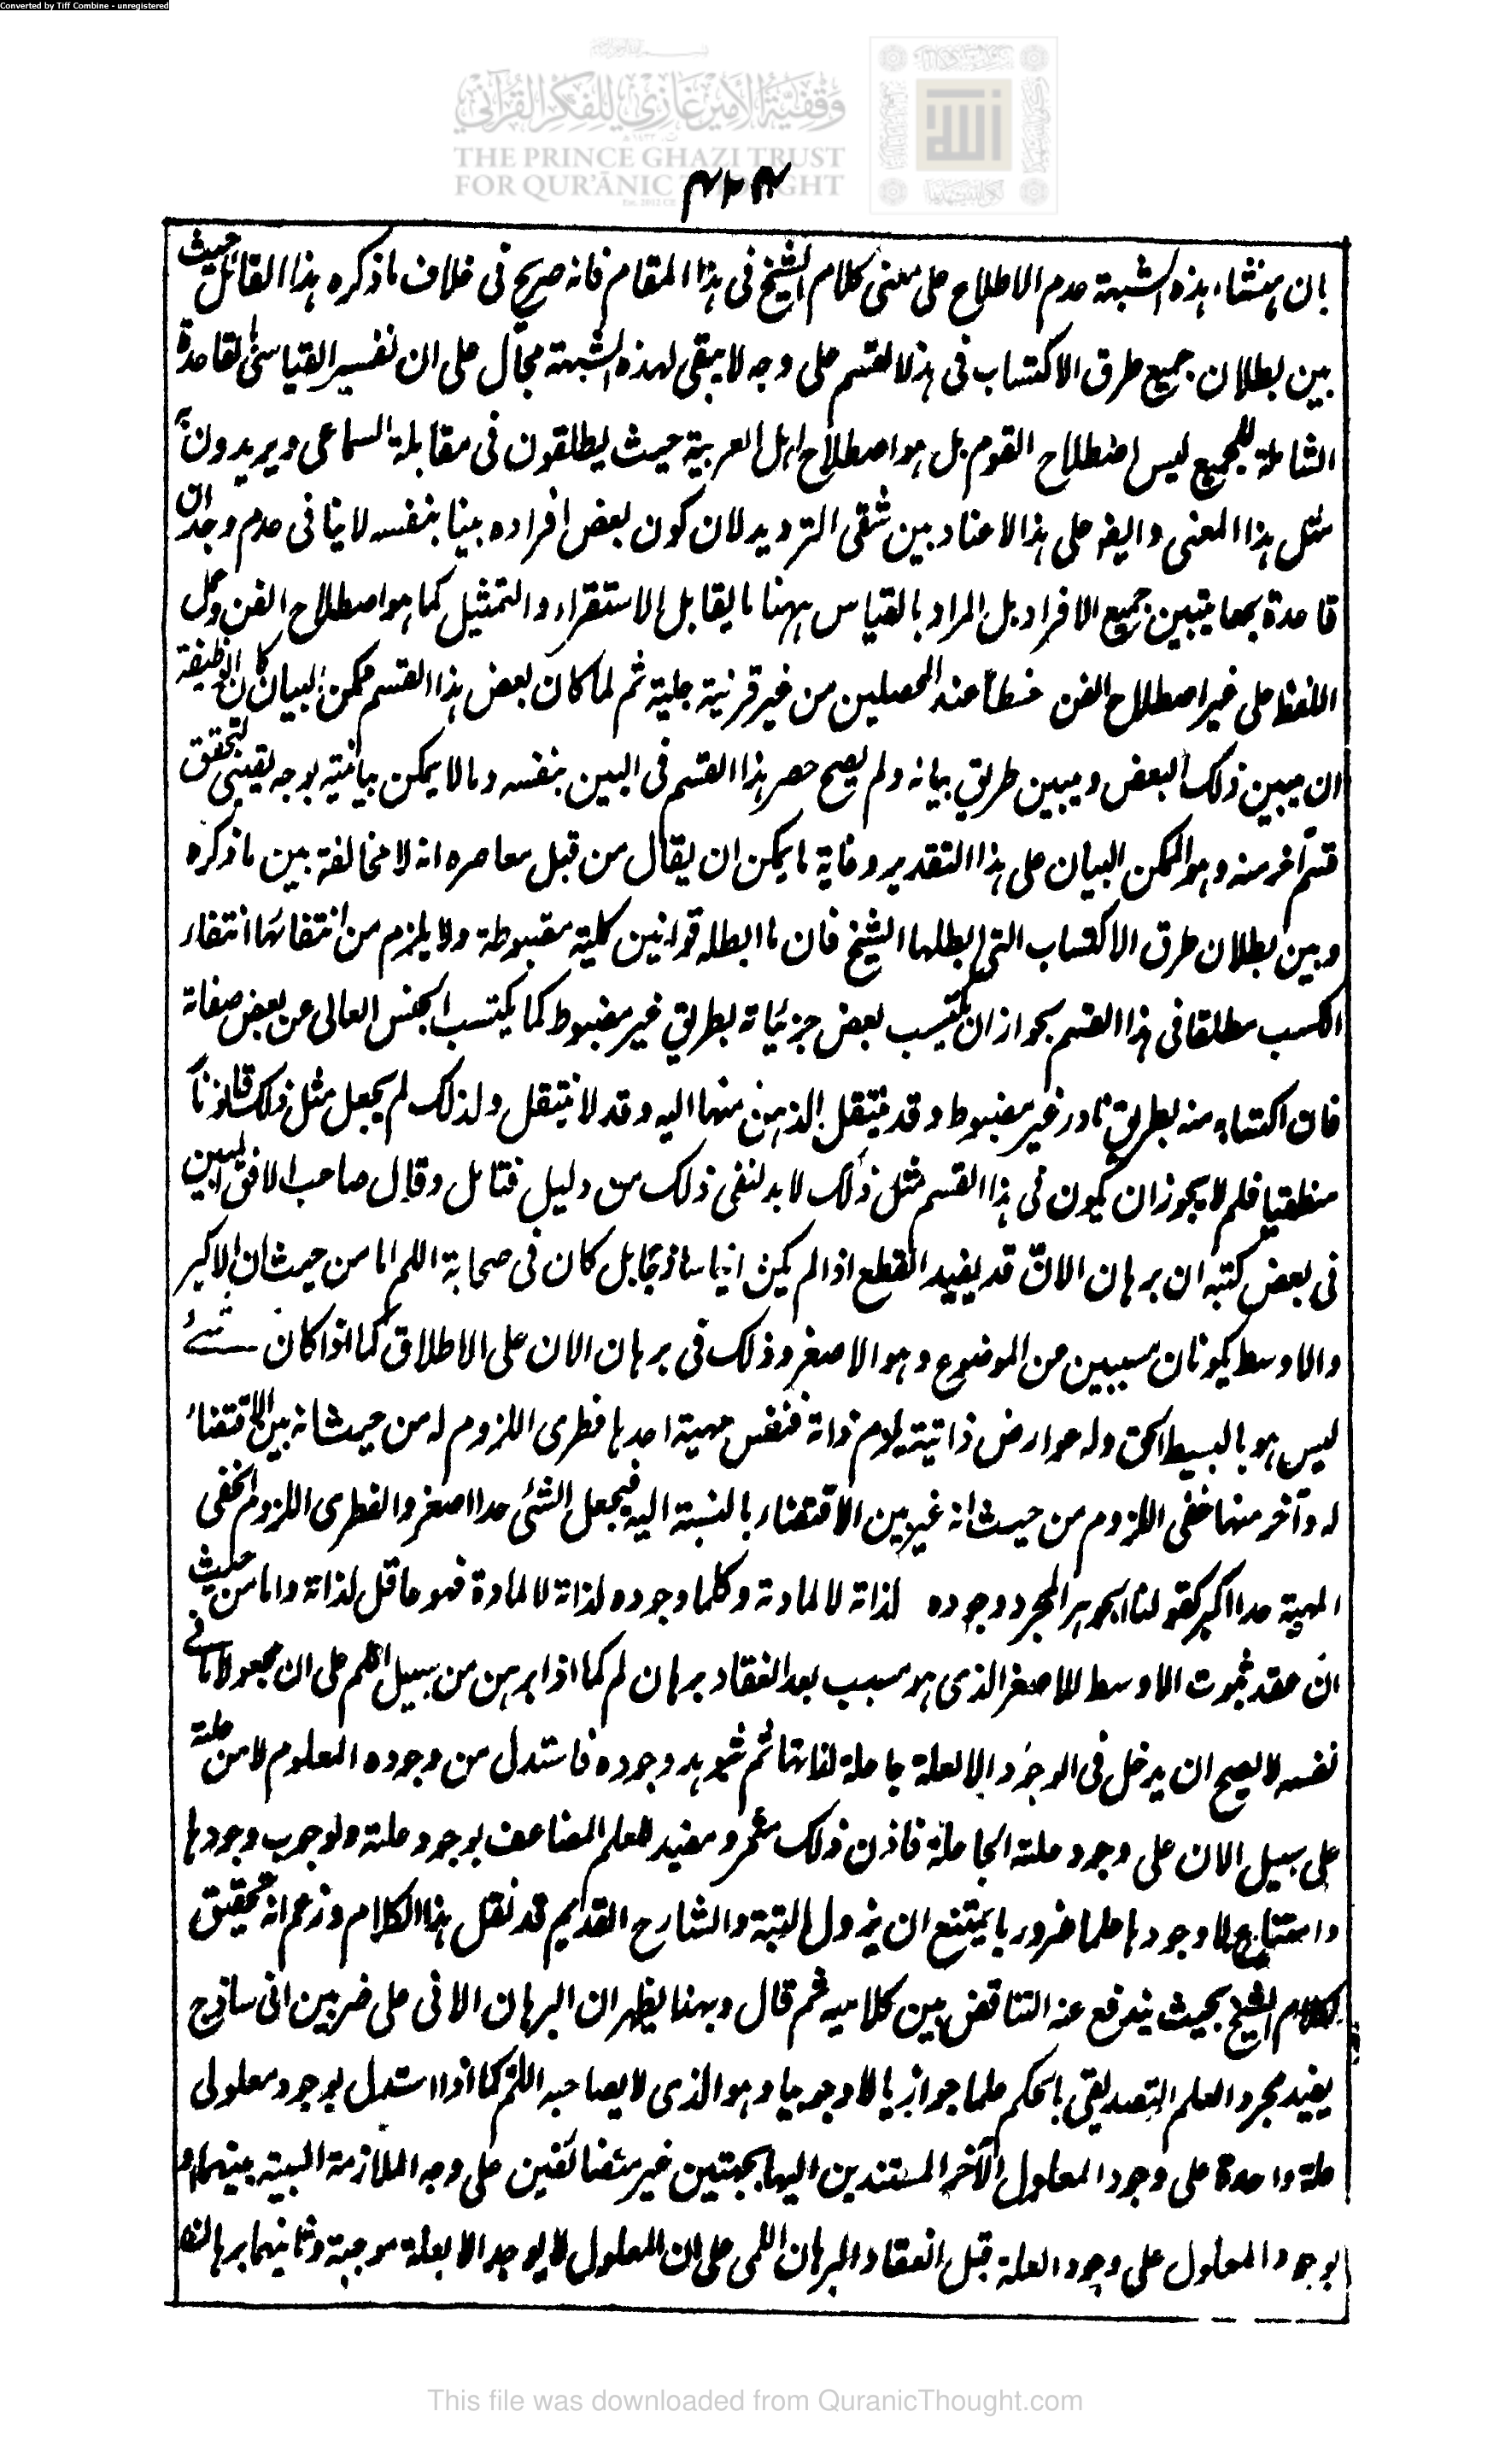 Converted by Tiff Combine - unregistered
وقفية الأمير غازي للفكر القرآني
THE PRINCE GHAZI TRUST
FOR QUR'ĀNIC THOUGHT
۴۲۴
بان منشاء هذه الشبهة عدم الاطلاع على معنى كلام الشيخ فى هذا المقام فانه صريح فى خلاف ما ذكره هذا القائل حيث
بين بطلان جميع طرق الاكتساب فى هذا القسم على وجه لا يبقى لهذه الشبهة مجال على ان تفسير القياسى لقاعدة
الشاملة للجميع ليس اصطلاح القوم بل هو اصطلاح اهل العربية حيث يطلقون فى مقابلة السماعى ويريدون به
مثل هذا المعنى وايضا على هذا لا عناد بين شقى الترديد لان كون بعض افراده بينا بنفسه لا ينافى عدم وجدان
قاعدة بها يتبين جميع الافراد بل المراد بالقياس ههنا ما يقابل الاستقراء والتمثيل كما هو اصطلاح الفن وحمل
اللفظ على غير اصطلاح الفن خطأ عند المحصلين من غير قرينة جلية ثم لما كان بعض هذا القسم ممكن البيان كان الوظيفة
ان يبين ذلك البعض ويبين طريق بيانه ولم يصح حصر هذا القسم فى البين بنفسه وما لا يمكن بيانيته بوجه يقينى لتحقق
قسم آخر منه وهو الممكن البيان على هذا التقدير وغاية ما يمكن ان يقال من قبل معاصره انه لا مخالفة بين ما ذكره
وبين بطلان طرق الاكتساب التى ابطلها الشيخ فان ما ابطله قوانين كلية مضبوطة ولا يلزم من انتفائها انتفاء
الكسب مطلقا فى هذا القسم بجواز ان يكتسب بعض جزئياته بطريق غير مضبوط كما يكتسب الجنس العالى عن بعض صفاته
فان اكتسابه منه بطريق نادر غير مضبوط وقد ينتقل الذهن منها اليه وقد لا ينتقل ولذلك لم يجعل مثل ذلك قانونا
منطقيا فلم لا يجوز ان يكون فى هذا القسم مثل ذلك لا بد لنفى ذلك من دليل فتامل وقال صاحب الافق المبين
فى بعض كتبه ان برهان الانّ قد يفيد القطع اذا لم يكن انيا ساذجا بل كان فى صحابة اللم اما من حيث ان الاكبر
والاوسط يكونان مسببين عن الموضوع وهو الاصغر وذلك فى برهان الان على الاطلاق كما اذا كان شئ
ليس هو بالبسيط الحق وله عوارض ذاتية يلزم ذاته فنفس مهية احدها فطرى اللزوم له من حيث انه بين الاقتضاء
له وآخر منها خفى اللزوم من حيث انه غير بين الاقتضاء بالنسبة اليه فيجعل الشئ حدا اصغر والفطرى اللزوم الخفى
المهية حدا اكبر كقولنا الجوهر المجرد وجوده لذاته لا لمادته وكلما وجوده لذاته لا لمادة فهو عاقل لذاته واما من حيث
ان عقد ثبوت الاوسط للاصغر الذى هو مسبب بعد انعقاد برهان لم كما اذا برهن من سبيل اللم على ان مجعولا ما فى
نفسه لا يصح ان يدخل فى الوجود الا لعلة جاعلة لذاتها ثم شوهد وجوده فاستدل من وجوده المعلوم لا من علته
على سبيل الان على وجود علته الجاعلة فاذن ذلك مثمر ومفيد للعلم المضاعف بوجود علته ولوجوب وجودها
وامتناع لا وجودها علما ضروريا يمتنع ان يزول البتة والشارح القديم قد نقل هذا الكلام وزعم انه تحقيق
لكلام الشيخ بحيث يندفع عنه التناقض بين كلاميه ثم قال وبهذا يظهر ان البرهان الانى على ضربين انى ساذج
يفيد مجرد العلم التصديقى بالحكم علما جوازيا لا وجوبيا وهو الذى لا يصاحبه اللم كما اذا استدل بوجود معلولى
علة واحدة على وجود المعلول الآخر المستندين اليها بجهتين غير متضائفتين على وجه الملازمة البينة بينهما او
بوجود المعلول على وجود العلة قبل انعقاد البرهان اللمى على ان المعلول لا يوجد الا بعلة موجبة وثانيهما برهان
This file was downloaded from QuranicThought.com